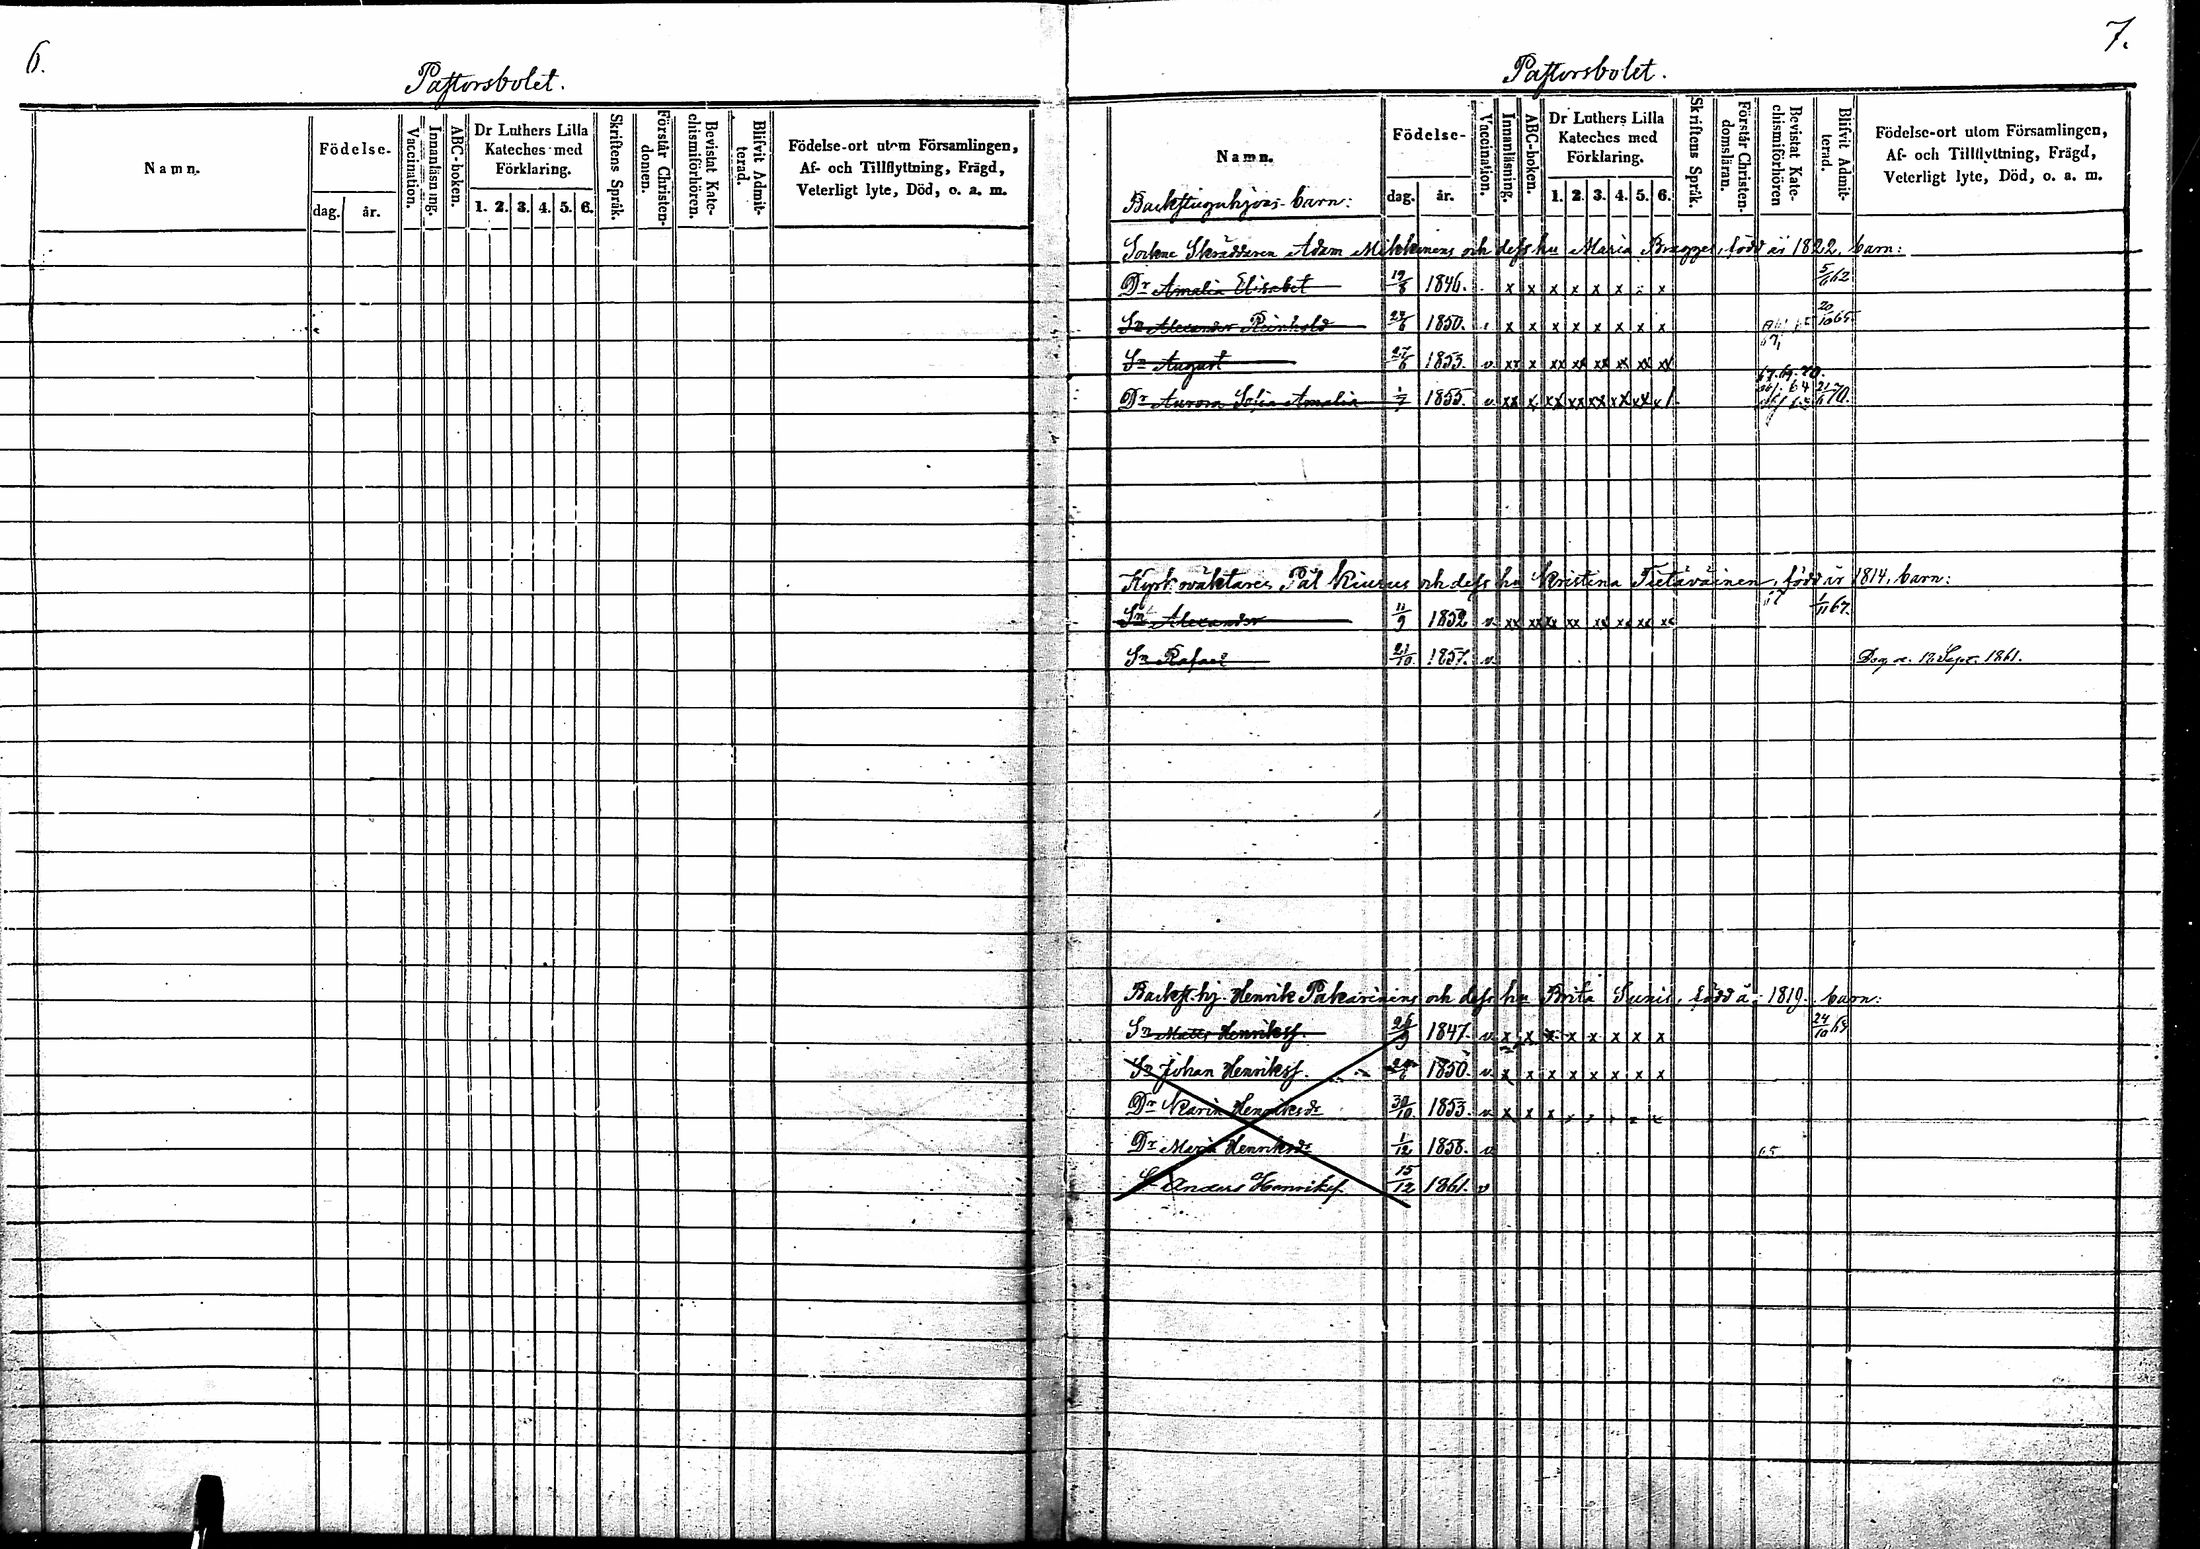 6.
Pastorsbolet.
Namn.
Födelse-
dag. år.
Vaccination.
Innanläsning.
ABC-boken.
Dr Luthers Lilla Kateches med Förklaring.
1. 2. 3. 4. 5. 6.
Skriftens Språk.
Förstår Christen-domen.
Bevistat Kate-chismiförhören.
Blifvit Admit-terad.
Födelse-ort utom Församlingen, Af- och Tillflyttning, Frägd, Veterligt lyte, Död, o. a. m.
7.
Pastorsbolet.
Namn.
Födelse-
dag. år.
Vaccination.
Innanläsning.
ABC-boken.
Dr Luthers Lilla Kateches med Förklaring.
1. 2. 3. 4. 5. 6.
Skriftens Språk.
Förstår Christen-domsläran.
Bevistat Kate-chismiförhören
Blifvit Admit-terad.
Födelse-ort utom Församlingen, Af- och Tillflyttning, Frägd, Veterligt lyte, Död, o. a. m.
Backstuguhjons-barn:
Sockne Skräddaren Adam Mikkinens och dess hu Maria Bragge, född år 1822, barn:
Dr Amalia Elisabet 19/8 1846. x x x x x x x 5/6 62
Sn Alexander Reinhold 1850. x x x x x x x x 20/10 65.
Sn August 27/6 1853. v xx x xx xx xx x xx xx
67. 69. 70.
Dr Aurora Sofia Amalia 1855. v xx x xx xx xx xx xx x/ 21/6 70.
Kyrkoväktaren Pål Kiurus och dess hu Kristina Tietäväinen, född år 1814, barn:
Sn Alexander 11/9 1852 v xx xx xx xx xx xx xx xx 1/11 67.
Sn Rafael 21/10 1857. v Dog d. 13 Sept. 1861.
Backst.hj. Henrik Pakarinens och dess hu Brita Sunis, född år 1819. barn:
Sn Matts Henrikss. 26/9 1847. v x x x x x x x x 24/10
Sn Johan Henrikss. 1850. v x x x x x x x x
Dr Karin Henriksdr 30/10 1853. v x x x
Dr Maria Henriksdr 1/12 1858. v 65
Sn Anders Henrikss. 15/12 1861. v